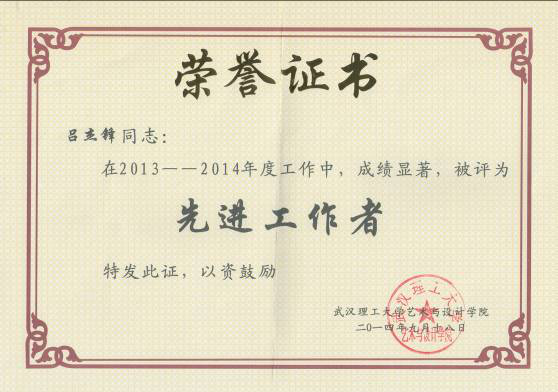 荣誉证书
吕杰锋同志：
在2013——2014年度工作中，成绩显著，被评为
先进工作者
特发此证，以资鼓励
武汉理工大学艺术与设计学院
二〇一四年九月十八日
武汉理工大学
艺术与设计学院